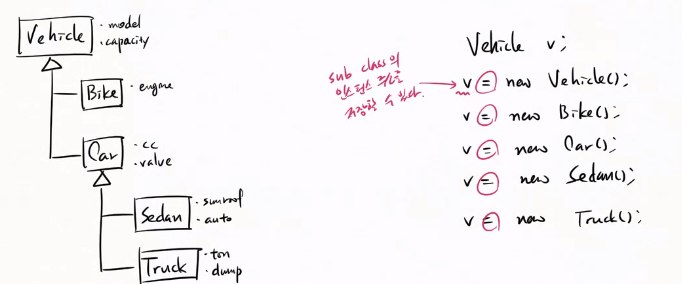 Vehicle
· model
· capacity
Bike
· engine
Car
· cc
· value
Sedan
· sunroof
· auto
Truck
· ton
· dump
sub class의
인스턴스 주소를
저장할 수 있다.
Vehicle v;
v = new Vehicle();
v = new Bike();
v = new Car();
v = new Sedan();
v = new Truck();